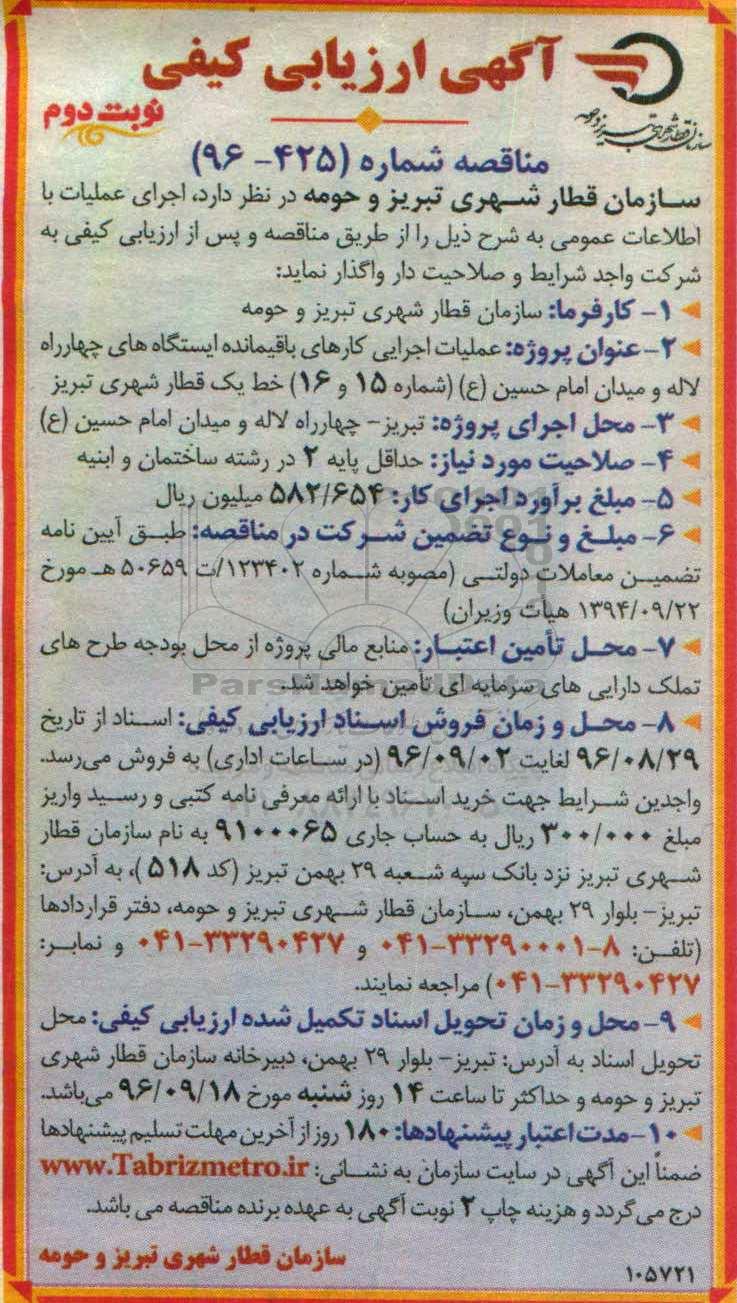 آگهی ارزیابی کیفی
نوبت دوم
سازمان قطار شهری تبریز و حومه
مناقصه شماره (۴۲۵- ۹۶)
سازمان قطار شهری تبریز و حومه در نظر دارد، اجرای عملیات با
اطلاعات عمومی به شرح ذیل را از طریق مناقصه و پس از ارزیابی کیفی به
شرکت واجد شرایط و صلاحیت دار واگذار نماید:
۱- کارفرما: سازمان قطار شهری تبریز و حومه
۲-عنوان پروژه: عملیات اجرایی کارهای باقیمانده ایستگاه های چهارراه
لاله و میدان امام حسین (ع) (شماره ۱۵ و ۱۶) خط یک قطار شهری تبریز
۳- محل اجرای پروژه: تبریز- چهارراه لاله و میدان امام حسین (ع)
۴- صلاحیت مورد نیاز: حداقل پایه ۲ در رشته ساختمان و ابنیه
۵- مبلغ برآورد اجرای کار: ۵۸۲/۶۵۴ میلیون ریال
۶- مبلغ و نوع تضمین شرکت در مناقصه: طبق آیین نامه
تضمین معاملات دولتی (مصوبه شماره ۱۲۳۴۰۲/ت ۵۰۶۵۹ هـ مورخ
۱۳۹۴/۰۹/۲۲ هیأت وزیران)
۷- محل تأمین اعتبار: منابع مالی پروژه از محل بودجه طرح های
تملک دارایی های سرمایه ای تأمین خواهد شد.
ParsNamadData
۸- محل و زمان فروش اسناد ارزیابی کیفی: اسناد از تاریخ
۹۶/۰۸/۲۹ لغایت ۹۶/۰۹/۰۲ (در ساعات اداری) به فروش می‌رسد.
واجدین شرایط جهت خرید اسناد با ارائه معرفی نامه کتبی و رسید واریز
مبلغ ۳۰۰/۰۰۰ ریال به حساب جاری ۹۱۰۰۰۶۵ به نام سازمان قطار
شهری تبریز نزد بانک سپه شعبه ۲۹ بهمن تبریز (کد ۵۱۸)، به آدرس:
تبریز- بلوار ۲۹ بهمن، سازمان قطار شهری تبریز و حومه، دفتر قراردادها
(تلفن: ۸-۰۴۱-۳۳۲۹۰۰۰۱ و ۰۴۱-۳۳۲۹۰۴۲۷ و نمابر:
۰۴۱-۳۳۲۹۰۴۲۷) مراجعه نمایند.
۹- محل و زمان تحویل اسناد تکمیل شده ارزیابی کیفی: محل
تحویل اسناد به آدرس: تبریز- بلوار ۲۹ بهمن، دبیرخانه سازمان قطار شهری
تبریز و حومه و حداکثر تا ساعت ۱۴ روز شنبه مورخ ۹۶/۰۹/۱۸ می‌باشد.
۱۰-مدت اعتبار پیشنهادها: ۱۸۰ روز از آخرین مهلت تسلیم پیشنهادها
ضمناً این آگهی در سایت سازمان به نشانی: www.Tabrizmetro.ir
درج می‌گردد و هزینه چاپ ۲ نوبت آگهی به عهده برنده مناقصه می باشد.
سازمان قطار شهری تبریز و حومه
۱۰۵۷۲۱